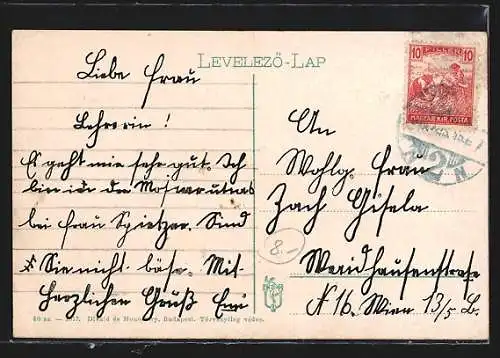 LEVELEZŐ-LAP
10 FILLÉR 10
MAGYAR KIR. POSTA
Liebe Frau
Lehrerin!
Es geht mir sehr gut. Ich
bin in der
bei Frau Spietzer. Sind
Sie nicht böse. Mit
Herzlichen Gruß
An
Wohlg. Frau
Zach Gisela
8.-
Weidhausenstraße
N 16. Wien 13/5 B.
1917. Divald és Monostory, Budapest. Törvényileg védve.